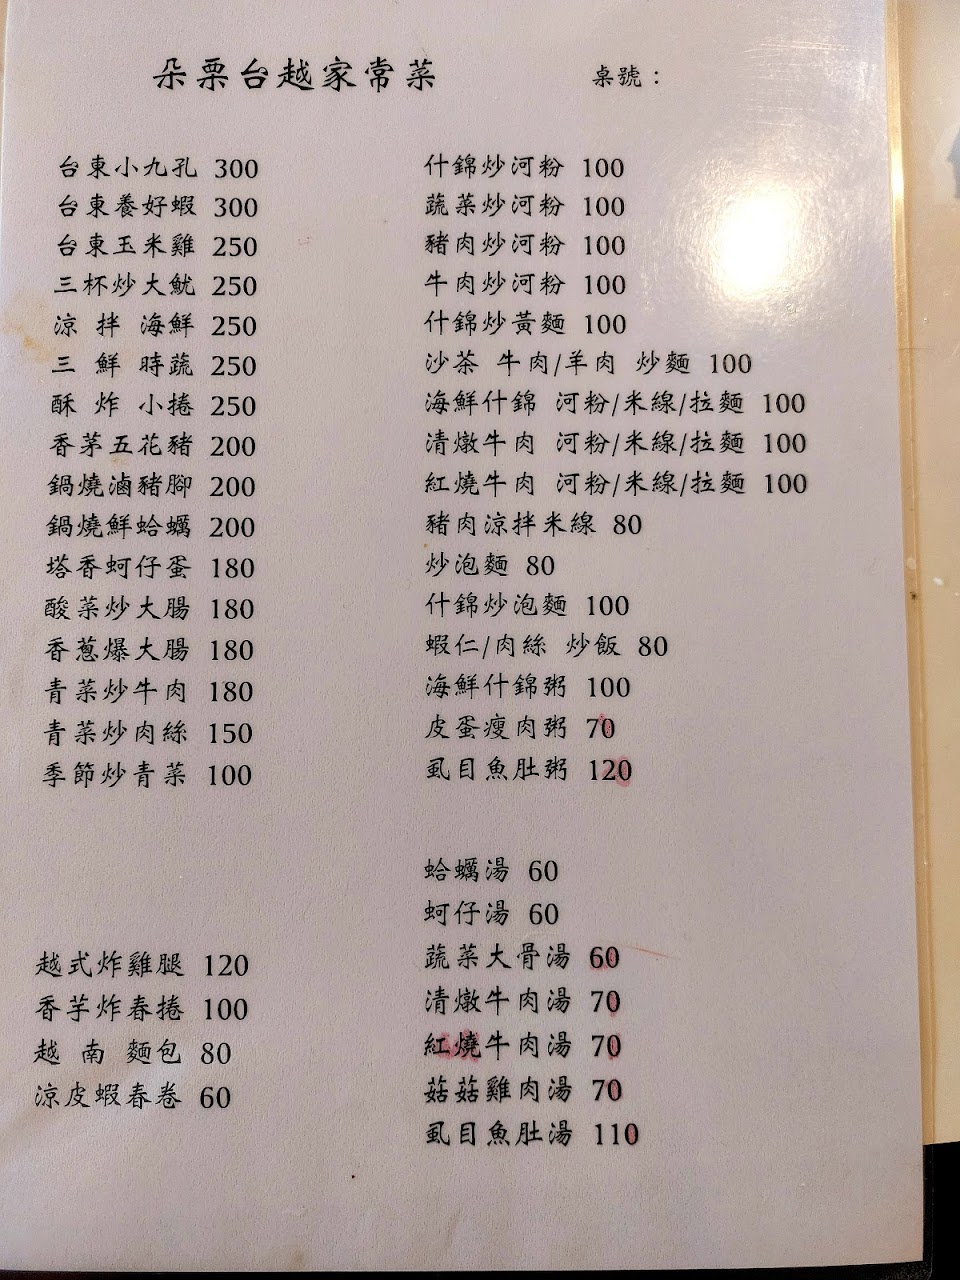 朵栗台越家常菜
桌號：
台東小九孔 300
台東養好蝦 300
台東玉米雞 250
三杯炒大魷 250
涼 拌 海鮮 250
三 鮮 時蔬 250
酥 炸 小捲 250
香茅五花豬 200
鍋燒滷豬腳 200
鍋燒鮮蛤蠣 200
塔香蚵仔蛋 180
酸菜炒大腸 180
香蔥爆大腸 180
青菜炒牛肉 180
青菜炒肉絲 150
季節炒青菜 100
越式炸雞腿 120
香芋炸春捲 100
越 南 麵包 80
涼皮蝦春卷 60
什錦炒河粉 100
蔬菜炒河粉 100
豬肉炒河粉 100
牛肉炒河粉 100
什錦炒黃麵 100
沙茶 牛肉/羊肉 炒麵 100
海鮮什錦 河粉/米線/拉麵 100
清燉牛肉 河粉/米線/拉麵 100
紅燒牛肉 河粉/米線/拉麵 100
豬肉涼拌米線 80
炒泡麵 80
什錦炒泡麵 100
蝦仁/肉絲 炒飯 80
海鮮什錦粥 100
皮蛋瘦肉粥 70
虱目魚肚粥 120
蛤蠣湯 60
蚵仔湯 60
蔬菜大骨湯 60
清燉牛肉湯 70
紅燒牛肉湯 70
菇菇雞肉湯 70
虱目魚肚湯 110